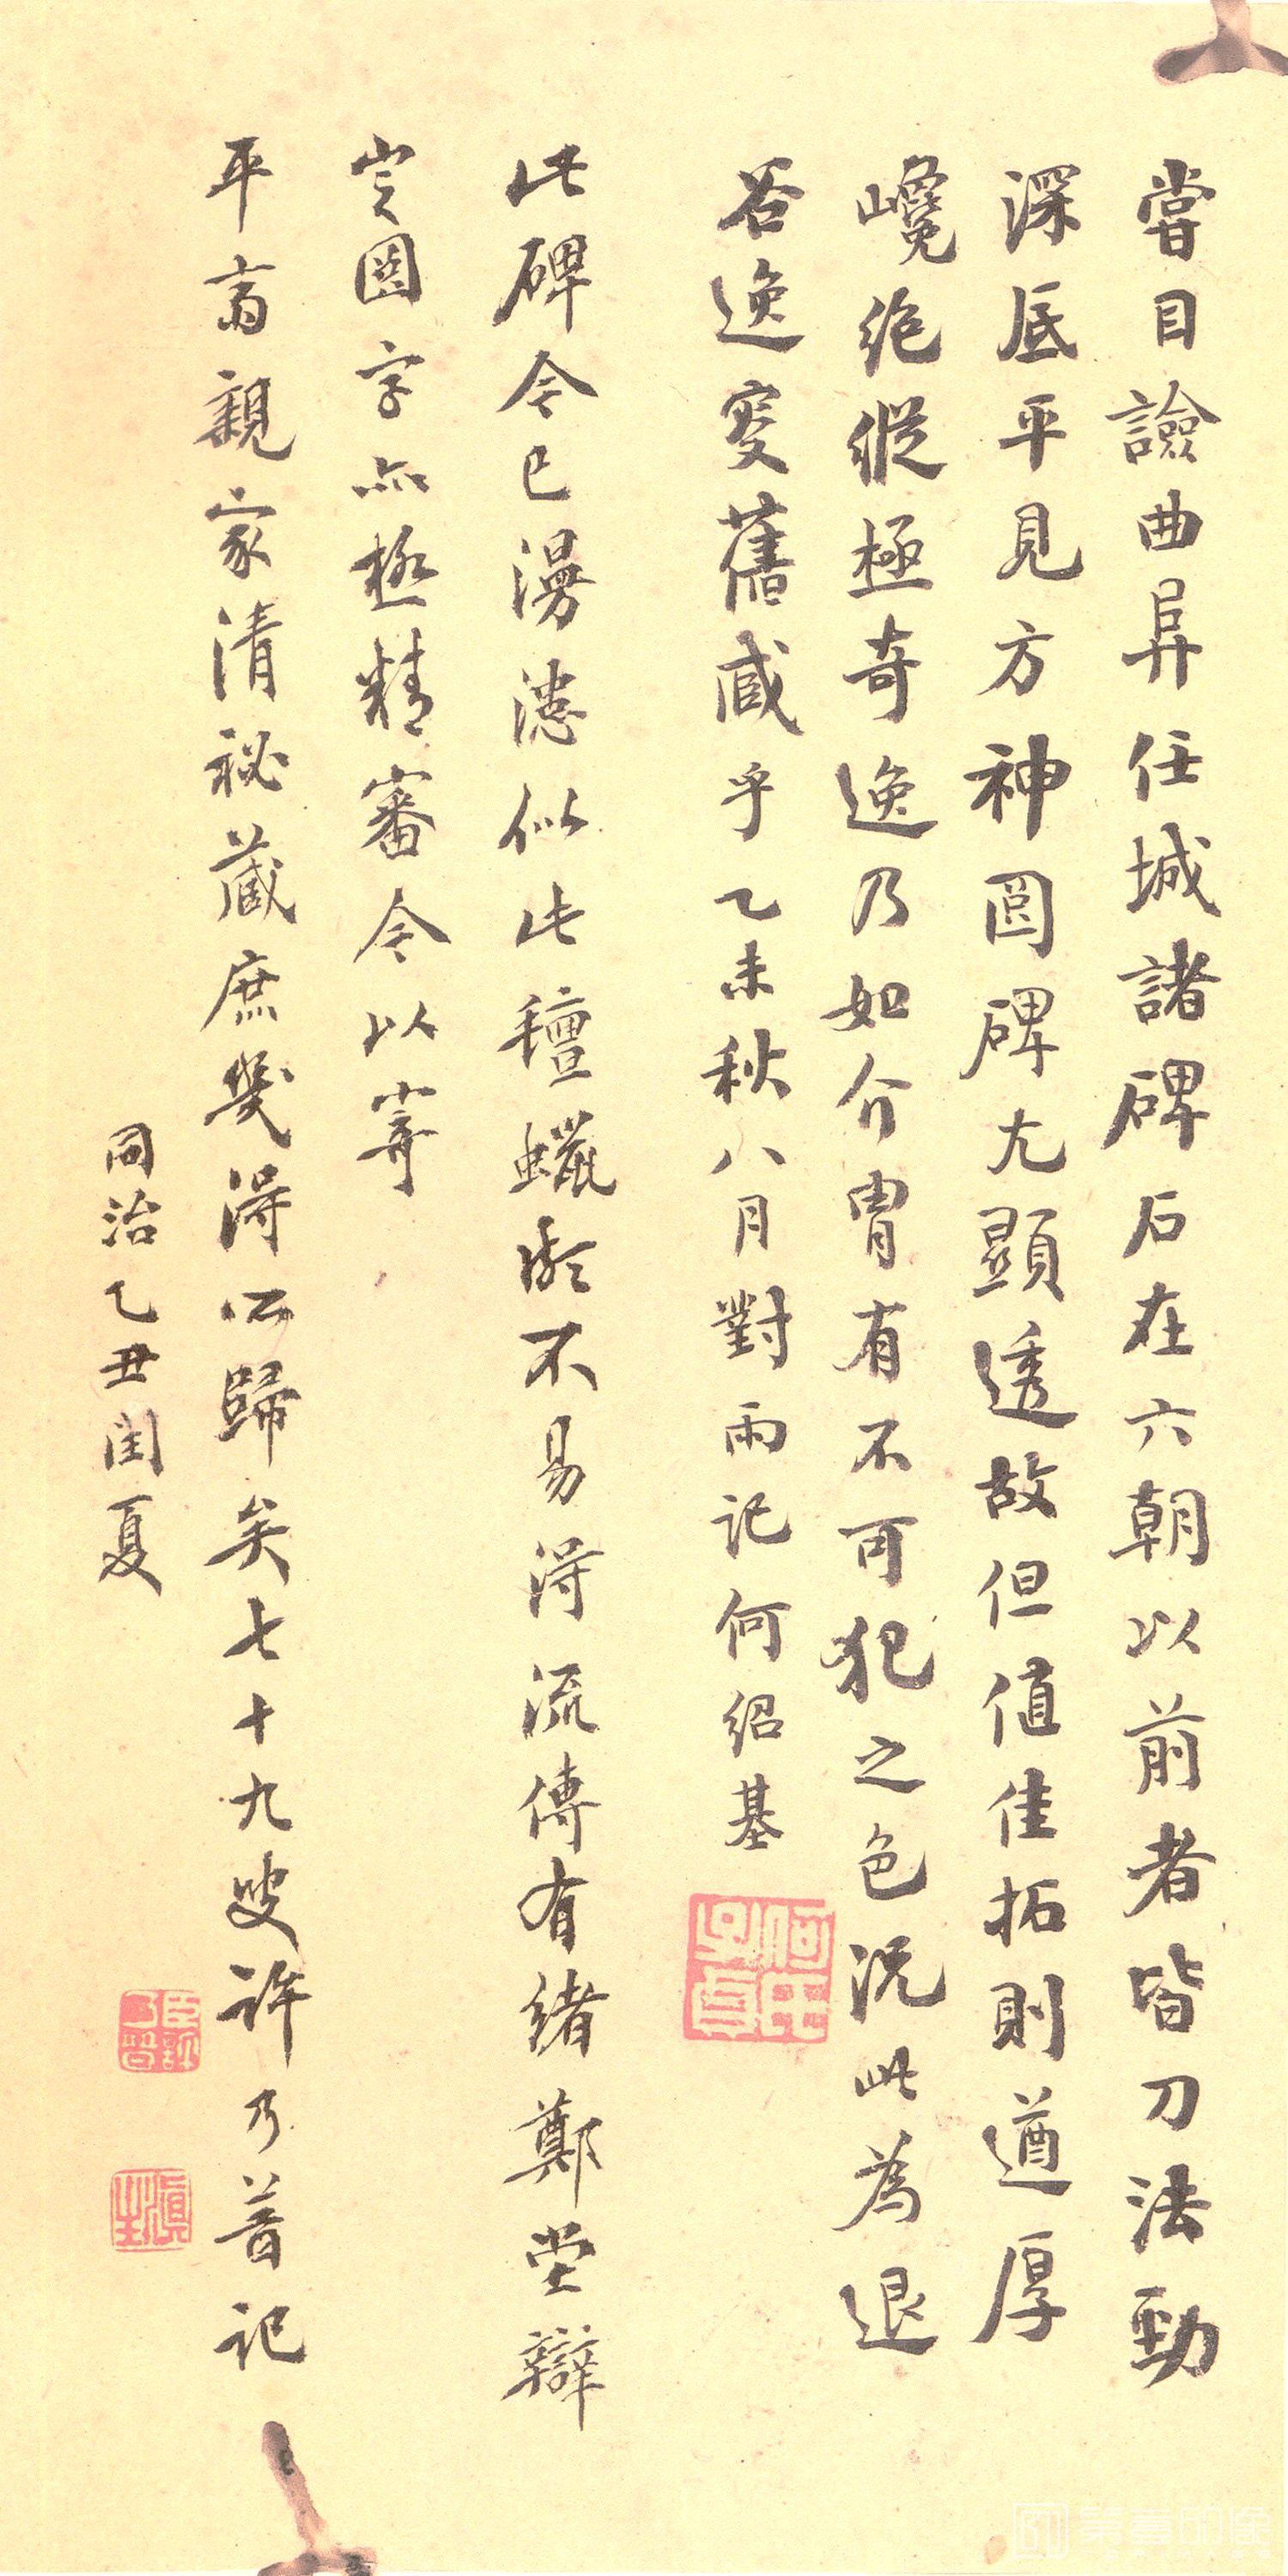 嘗目諗曲阜任城諸碑石在六朝以前者皆刀法勁
深底平見方神囹碑尤顯透故但值佳拓則遒厚
巉絶縱極奇逸乃如介胄有不可犯之色況此為退
谷逸叟舊藏乎乙未秋八月對雨記何紹基
此碑今已漫漶似此氊蠟斷不易得流傳有緒鄭堂辯
定圂字亦極精審今以寄
平齋親家清祕藏庶幾得所歸矣七十九叟許乃普記
同治乙丑閏夏
何子貞氏
臣許乃普
滇生